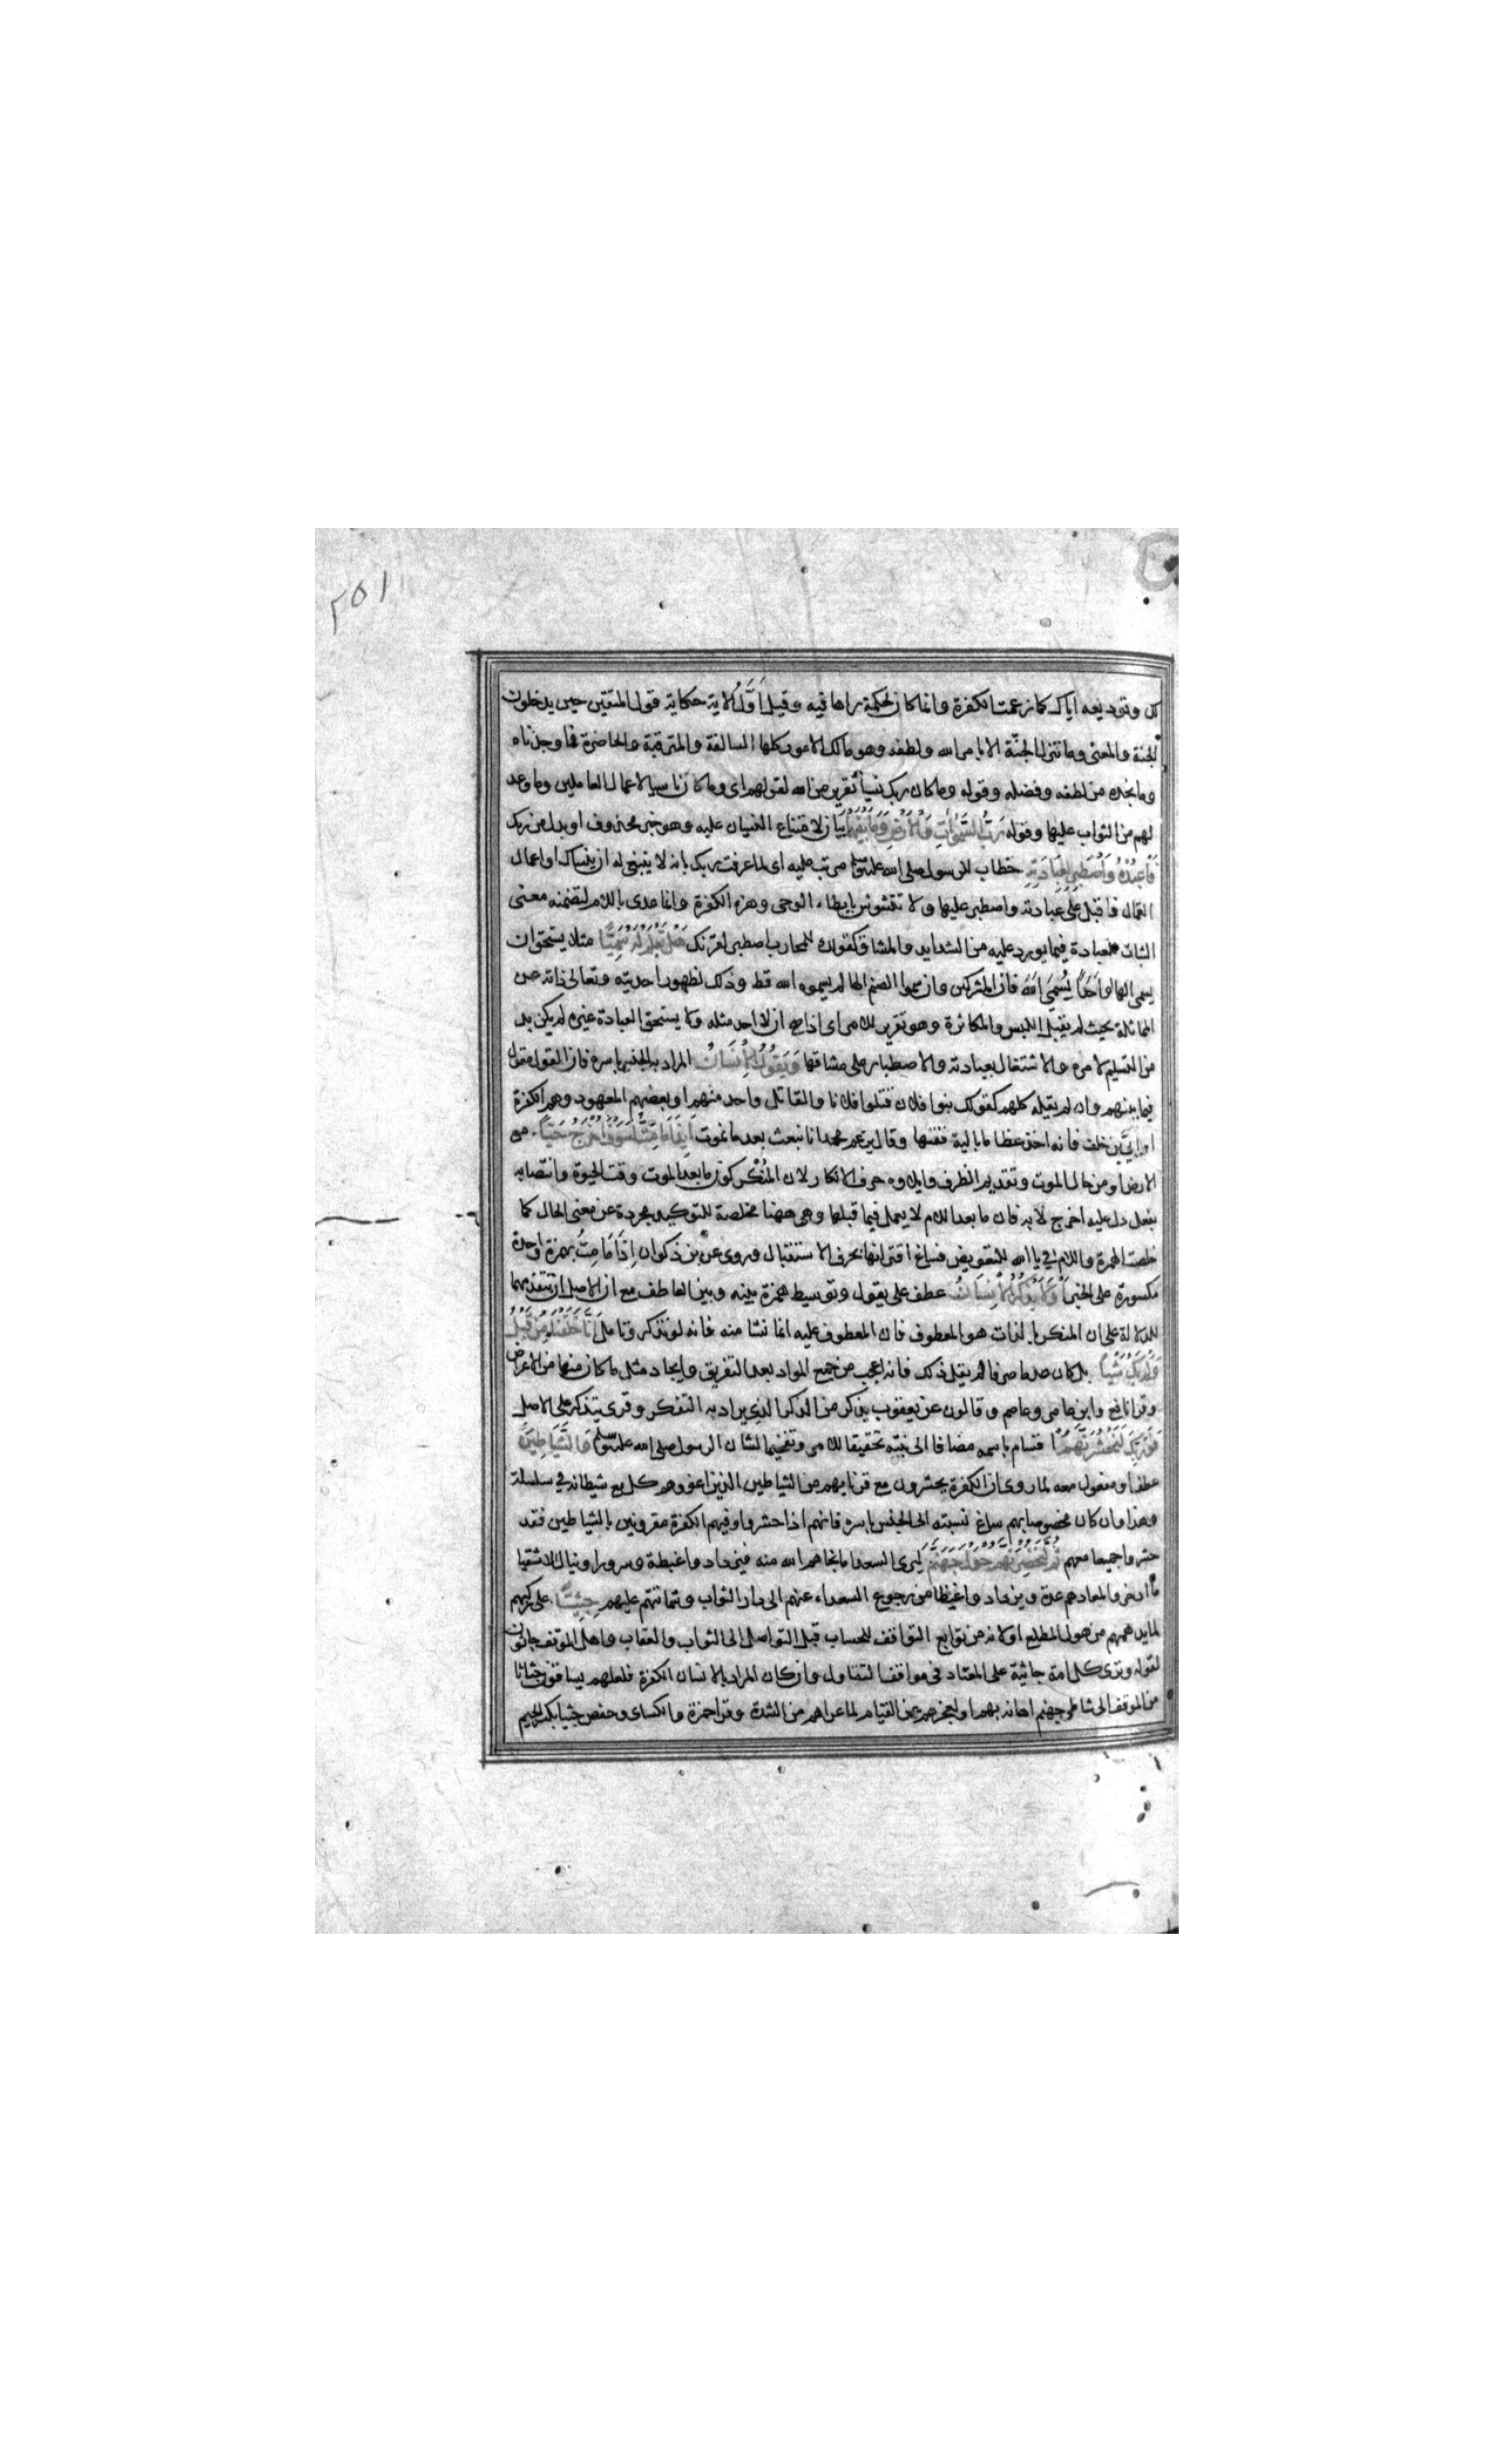 ٢٥١
لك وتوديعه اياك كما زعمت الكفرة وانما كان لحكمة راها فيه وقيل اَوَّلُ الاية حكاية قول المتقين حين يدخلون
الجنة والمعنى وما تنزل الجنّة الا بامر الله ولطفه وهو مالك الامور كلها السالفة والمترقبة والحاضرة فما وجدناه
وما نجده من لطفه وفضله وقوله وما كان ربك نسياً تقرير من الله لقولهم اى وما كان ناسيا لاعمال العاملين وما وعد
لهم من الثواب عليها وقوله رَبُّ السَّمٰوَاتِ وَالْاَرْضِ وَمَا بَيْنَهُمَا بيان لامتناع النسيان عليه وهو خبر محذوف او بدل من ربك
فَاعْبُدْهُ وَاصْطَبِرْ لِعِبَادَتِهِ خطاب للرسول صلى الله عليه وسلم مرتب عليه اى لما عرفت ربك بانه لا ينبغى له ان ينساك او اعمال
العمال فاقبل على عبادته واصطبر عليها ولا تتشوش بابطاء الوحى وهزء الكفرة وانما عدى باللام لتضمنه معنى
الثبات للعبادة فيما يورد عليه من الشدايد والمشاق كقولك للمحارب اصطبر لقرنك هَلْ تَعْلَمُ لَهُ سَمِيًّا مثلا يستحق ان
يسمى الها او اَحَدًا يُسَمَّى اَللّٰهَ فان المشركين وان سموا الصنم الها لم يسموه الله قط وذلك لظهور احديته وتعالى ذاته عن
المماثلة بحيث لم يقبل اللبس والمكابرة وهو تقرير للامر اى اذا صح ان لا احد مثله ولا يستحق العبادة غيره لم يكن بد
من التسليم لامره والاشتغال بعبادته والاصطبار على مشاقها وَيَقُولُ الْاِنْسَانُ المراد به الجنس باسره فان القول مقول
فيما بينهم وان لم يقله كلهم كقولك بنوا فلان قتلوا فلانا والقاتل واحد منهم او بعضهم المعهود وهم الكفرة
او اُبَيّ بن خلف فانه اخذ عظاما بالية ففتها وقال يزعم محمد انا نبعث بعد ما نموت اَئِذَا مَا مِتُّ لَسَوْفَ اُخْرَجُ حَيًّا من
الارض او من حال الموت وتقديم الظرف وايلاوه حرف الانكار لان المُنْكَر كون ما بعد الموت وقت الحيوة وانتصابه
بفعل دل عليه اخرج لا به فان ما بعد اللام لا يعمل فيما قبلها وهى ههنا مخلصة للتوكيد مجردة عن معنى الحال كما
خلصت الهمزة واللام فى يا الله للتعويض فساغ اقترانها بحرف الاستقبال وروى عن بن ذكوان اِذَا مَا مِتُّ بهمزة واحدة
مكسورة على الخبر اَوَلَا يَذَّكَّرُ الْاِنْسَانُ عطف على يقول وتوسيط همزة بينه وبين العاطف مع ان الاصل ان تتقدمهما
للدلالة على ان المنكر بالذات هو المعطوف فان المعطوف عليه انما نشا منه فانه لو تذكر وتامل اَنَّا خَلَقْنَاهُ مِنْ قَبْلُ
وَلَمْ يَكُ شَيْئاً بل كان عدما صرفا لم يقل ذلك فانه اعجب من جميع المواد بعد التفريق وايجاد مثل ما كان منها من الاعراض
وقرا نافع وابن عامر وعاصم وقالون عن يعقوب يذكر من الذكر الذى يراد به التفكر وقرى يتذكر على الاصل
فَوَرَبِّكَ لَنَحْشُرَنَّهُمْ اقسام باسمه مضافا الى نبيّه تحقيقا للامر وتفخيما لشان الرسول صلى الله عليه وسلم وَالشَّيَاطِينَ
عطف او مفعول معه لما روى ان الكفرة يحشرون مع قرنايهم من الشياطين الذين اغووهم كل مع شيطانه فى سلسلة
وهذا وان كان مخصوصا بهم ساغ نسبته الى الجنس باسره فانهم اذا حشروا وفيهم الكفرة مقرونين بالشياطين فقد
حشروا جميعا معهم ثُمَّ لَنُحْضِرَنَّهُمْ حَوْلَ جَهَنَّمَ ليرى السعدا ما نجاهم الله منه فيزداد واغبطة وسرورا وينال الاشقيا
ما ادخروا لمعادهم عدة ويزدادوا غيظا من رجوع السعداء عنهم الى دار الثواب وشماتتهم عليهم جِثِيًّا على ركبهم
لما يدهمهم من هول المطلع او لانه من توابع التواقف للحساب قبل التواصل الى الثواب والعقاب واهل الموقف جاثون
لقوله وترى كل امة جاثية على المعتاد فى مواقف التقاول وان كان المراد بالانسان الكفرة فلعلهم يساقون جثاتا
من الموقف الى شاطى جهنم اهانة بهم او لعجزهم عن القيام لما عراهم من الشدة وقرا حمزة والكساى وحفص جثيا بكسر الجيم